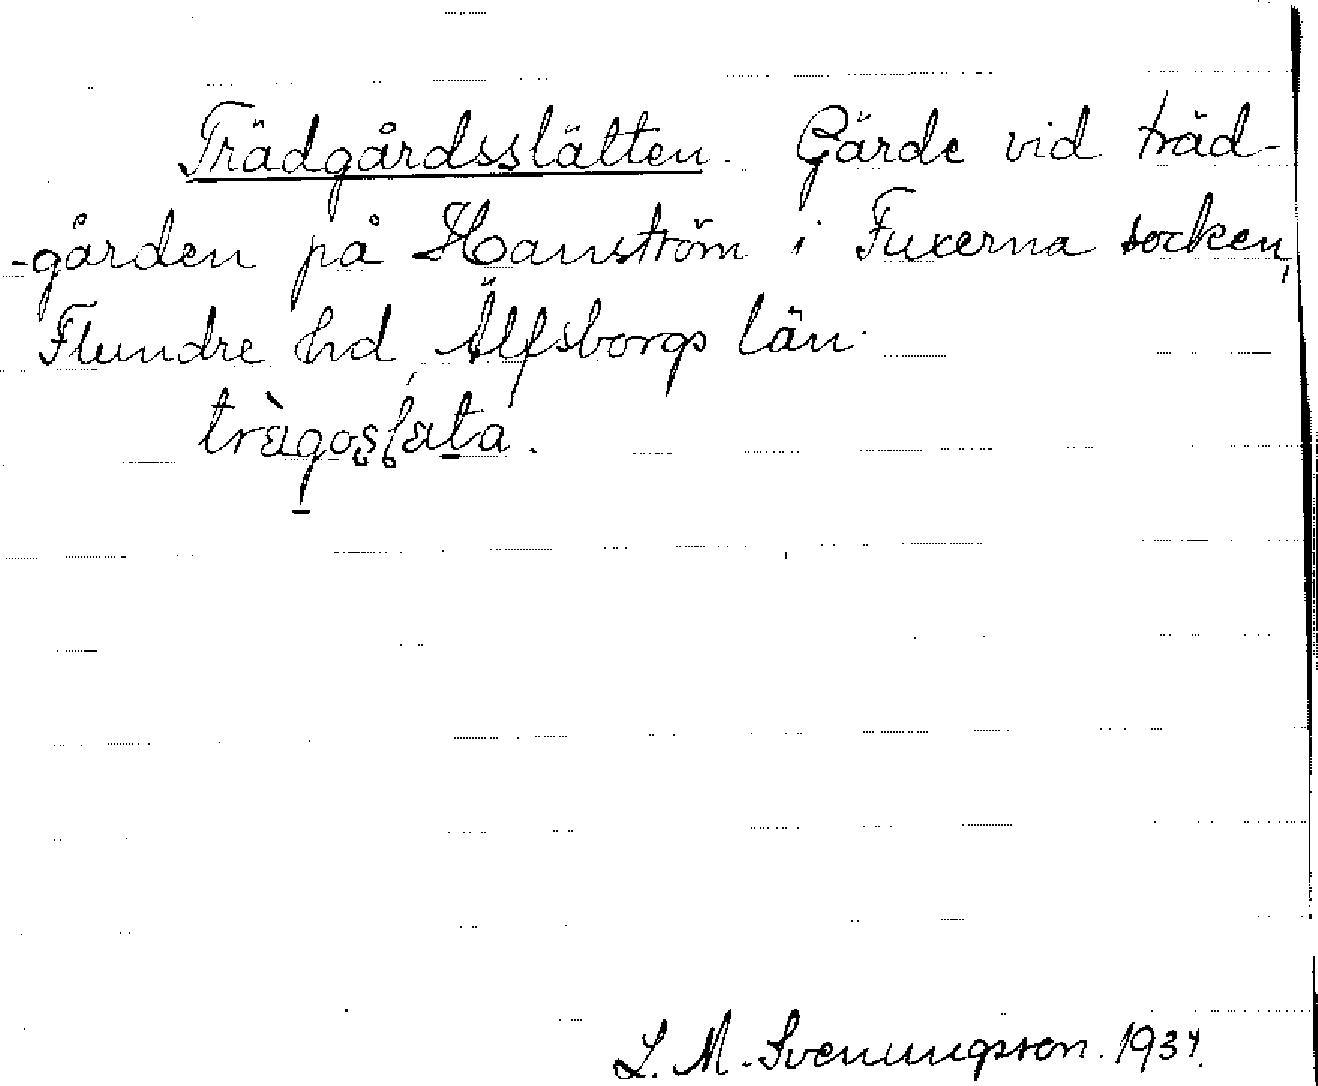 Trädgårdsslätten. Gärde vid träd-
-gården på Hanström i Fuxerna socken,
Flundre hd, Älfsborgs län.
L. M. Svenungsson. 1934.